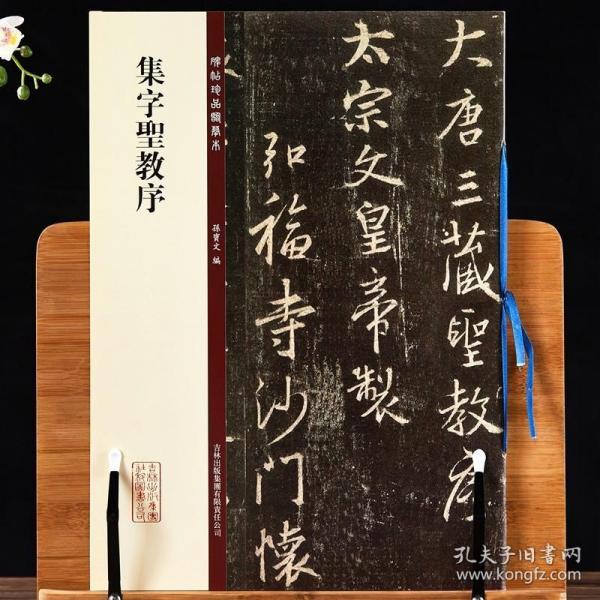 大唐三藏聖教序
太宗文皇帝製
弘福寺沙門懷
碑帖珍品臨摹本
孫寶文 編
吉林出版集團有限責任公司
集字聖教序
孔夫子旧書网
www.kongfz.com